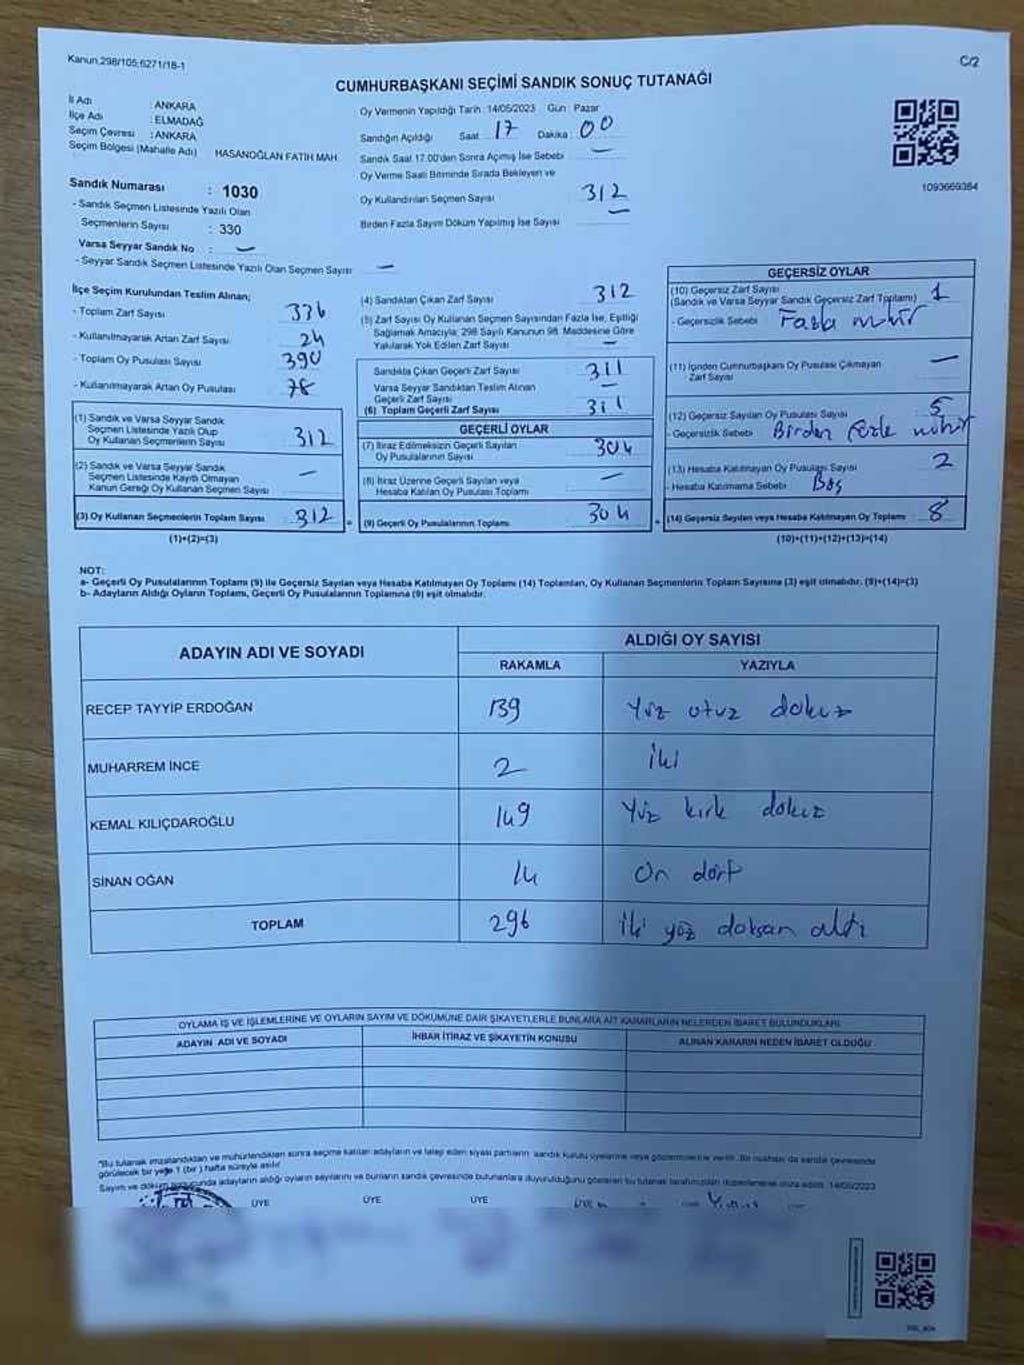 Kanun:298/105;6271/18-1
C/2
CUMHURBAŞKANI SEÇİMİ SANDIK SONUÇ TUTANAĞI
İl Adı : ANKARA
İlçe Adı : ELMADAĞ
Seçim Çevresi : ANKARA
Seçim Bölgesi (Mahalle Adı) HASANOĞLAN FATİH MAH.
Sandık Numarası : 1030
- Sandık Seçmen Listesinde Yazılı Olan
Seçmenlerin Sayısı : 330
Varsa Seyyar Sandık No : —
- Seyyar Sandık Seçmen Listesinde Yazılı Olan Seçmen Sayısı —
Oy Vermenin Yapıldığı Tarih : 14/05/2023 Gün : Pazar
Sandığın Açıldığı Saat 17 Dakika : 00
Sandık Saat 17.00'den Sonra Açımış İse Sebebi —
Oy Verme Saati Bitiminde Sırada Bekleyen ve
Oy Kullandırılan Seçmen Sayısı 312
Birden Fazla Sayım Döküm Yapılmış İse Sayısı —
1093669384
İlçe Seçim Kurulundan Teslim Alınan;
- Toplam Zarf Sayısı 336
- Kullanılmayarak Artan Zarf Sayısı 24
- Toplam Oy Pusulası Sayısı 390
- Kullanılmayarak Artan Oy Pusulası 78
(1) Sandık ve Varsa Seyyar Sandık
Seçmen Listesinde Yazılı Olup
Oy Kullanan Seçmenlerin Sayısı 312
(2) Sandık ve Varsa Seyyar Sandık
Seçmen Listesinde Kayıtlı Olmayan
Kanun Gereği Oy Kullanan Seçmen Sayısı —
(3) Oy Kullanan Seçmenlerin Toplam Sayısı 312
(1)+(2)=(3)
(4) Sandıktan Çıkan Zarf Sayısı 312
(5) Zarf Sayısı Oy Kullanan Seçmen Sayısından Fazla İse, Eşitliği
Sağlamak Amacıyla; 298 Sayılı Kanunun 98. Maddesine Göre
Yakılarak Yok Edilen Zarf Sayısı —
Sandıkta Çıkan Geçerli Zarf Sayısı 311
Varsa Seyyar Sandıktan Teslim Alınan
Geçerli Zarf Sayısı —
(6) Toplam Geçerli Zarf Sayısı 311
GEÇERLİ OYLAR
(7) İtiraz Edilmeksizin Geçerli Sayılan
Oy Pusulalarının Sayısı 304
(8) İtiraz Üzerine Geçerli Sayılan veya
Hesaba Katılan Oy Pusulası Toplamı —
= (9) Geçerli Oy Pusulalarının Toplamı 304
GEÇERSİZ OYLAR
(10) Geçersiz Zarf Sayısı
(Sandık ve Varsa Seyyar Sandık Geçersiz Zarf Toplamı) 1
- Geçersizlik Sebebi Fazla mühür
(11) İçinden Cumhurbaşkanı Oy Pusulası Çıkmayan
Zarf Sayısı —
(12) Geçersiz Sayılan Oy Pusulası Sayısı 5
- Geçersizlik Sebebi Birden fazla mühür
(13) Hesaba Katılmayan Oy Pusulası Sayısı 2
- Hesaba Katılmama Sebebi Boş
+ (14) Geçersiz Sayılan veya Hesaba Katılmayan Oy Toplamı 8
(10)+(11)+(12)+(13)=(14)
NOT:
a- Geçerli Oy Pusulalarının Toplamı (9) ile Geçersiz Sayılan veya Hesaba Katılmayan Oy Toplamı (14) Toplamları, Oy Kullanan Seçmenlerin Toplam Sayısına (3) eşit olmalıdır. (9)+(14)=(3)
b- Adayların Aldığı Oyların Toplamı, Geçerli Oy Pusulalarının Toplamına (9) eşit olmalıdır.
ADAYIN ADI VE SOYADI
ALDIĞI OY SAYISI
RAKAMLA YAZIYLA
RECEP TAYYİP ERDOĞAN 139 Yüz otuz dokuz
MUHARREM İNCE 2 iki
KEMAL KILIÇDAROĞLU 149 Yüz kırk dokuz
SİNAN OĞAN 14 On dört
TOPLAM 296 iki yüz doksan altı
OYLAMA İŞ VE İŞLEMLERİNE VE OYLARIN SAYIM VE DÖKÜMÜNE DAİR ŞİKAYETLERLE BUNLARA AİT KARARLARIN NELERDEN İBARET BULUNDUKLARI
ADAYIN ADI VE SOYADI İHBAR İTİRAZ VE ŞİKAYETİN KONUSU ALINAN KARARIN NEDEN İBARET OLDUĞU
"Bu tutanak imzalandıktan ve mühürlendikten sonra seçime katılan adayların ve talep eden siyasi partilerin sandık kurulu üyelerine veya gözlemcilerine verilir. Bir nüshası da sandık çevresinde
görülecek bir yere 1 (bir) hafta süreyle asılır.
Sayım ve döküm sonucunda adayların aldığı oyların sayılarını ve bunların sandık çevresinde bulunanlara duyurulduğunu gösteren bu tutanak tarafımızdan düzenlenerek imza edildi. 14/05/2023
ÜYE ÜYE ÜYE